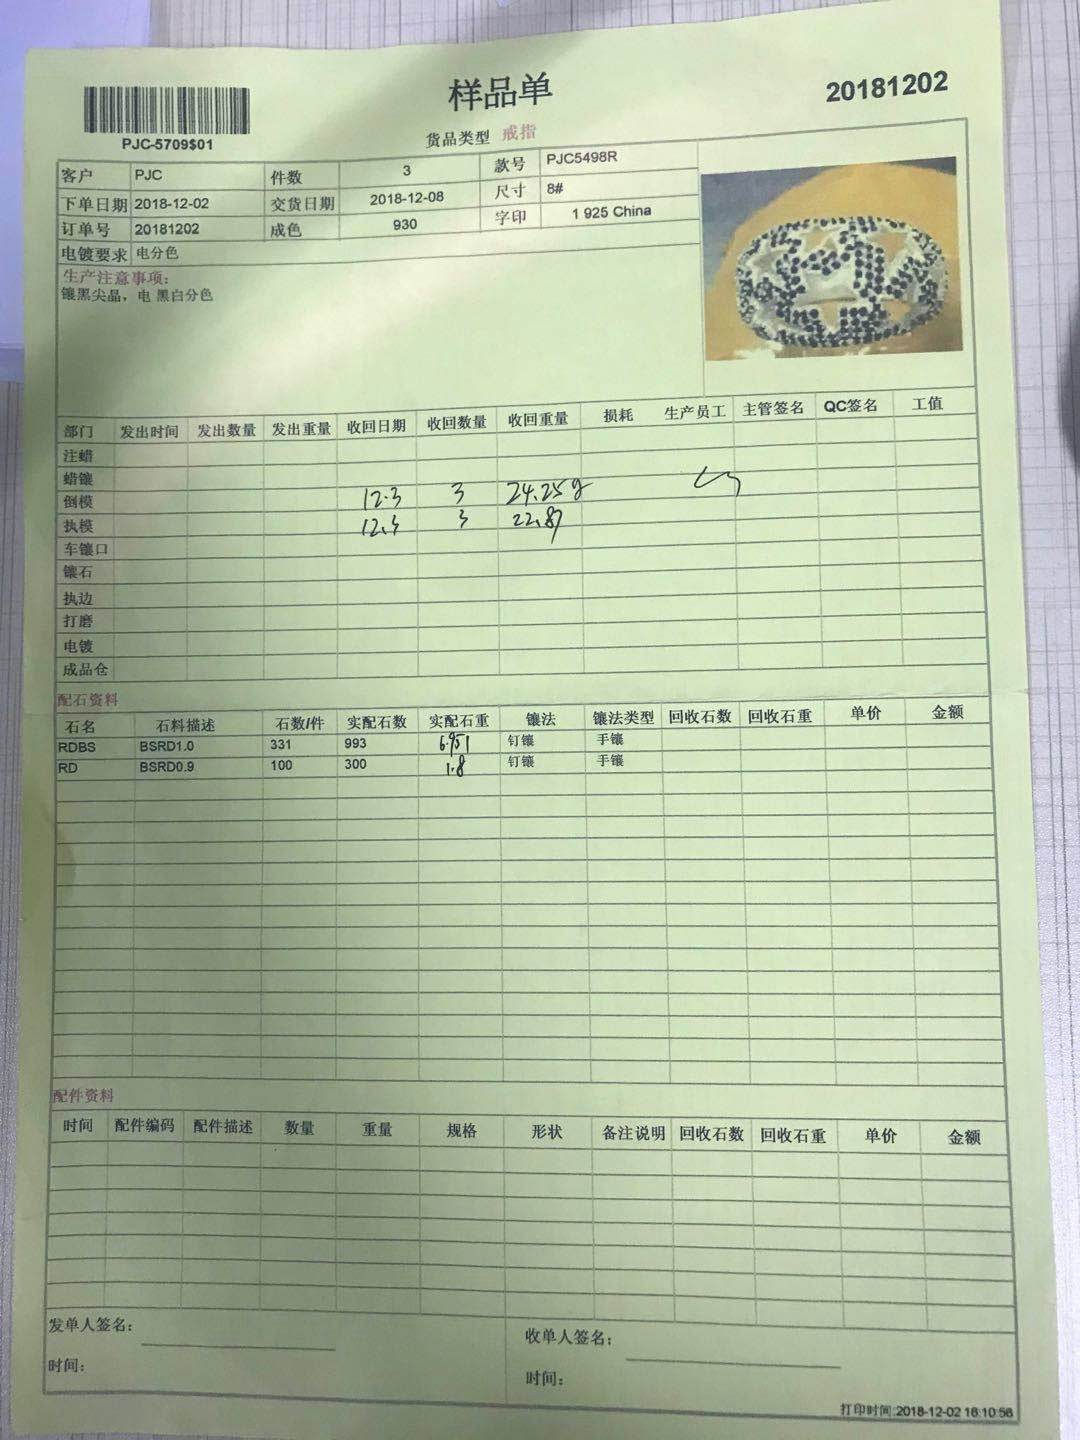 样品单
20181202
PJC-5709$01
货品类型 戒指
客户 PJC 件数 3 款号 PJC5498R
下单日期 2018-12-02 交货日期 2018-12-08 尺寸 8#
订单号 20181202 成色 930 字印 1 925 China
电镀要求 电分色
生产注意事项:
镶黑尖晶，电 黑白分色
部门 发出时间 发出数量 发出重量 收回日期 收回数量 收回重量 损耗 生产员工 主管签名 QC签名 工值
注蜡
蜡镶
倒模 12.3 3 24.25g
执模 12.3 3 22.87
车镶口
镶石
执边
打磨
电镀
成品仓
配石资料
石名 石料描述 石数/件 实配石数 实配石重 镶法 镶法类型 回收石数 回收石重 单价 金额
RDBS BSRD1.0 331 993 6.951 钉镶 手镶
RD BSRD0.9 100 300 1.8 钉镶 手镶
配件资料
时间 配件编码 配件描述 数量 重量 规格 形状 备注说明 回收石数 回收石重 单价 金额
发单人签名: 收单人签名:
时间: 时间:
打印时间:2018-12-02 16:10:56